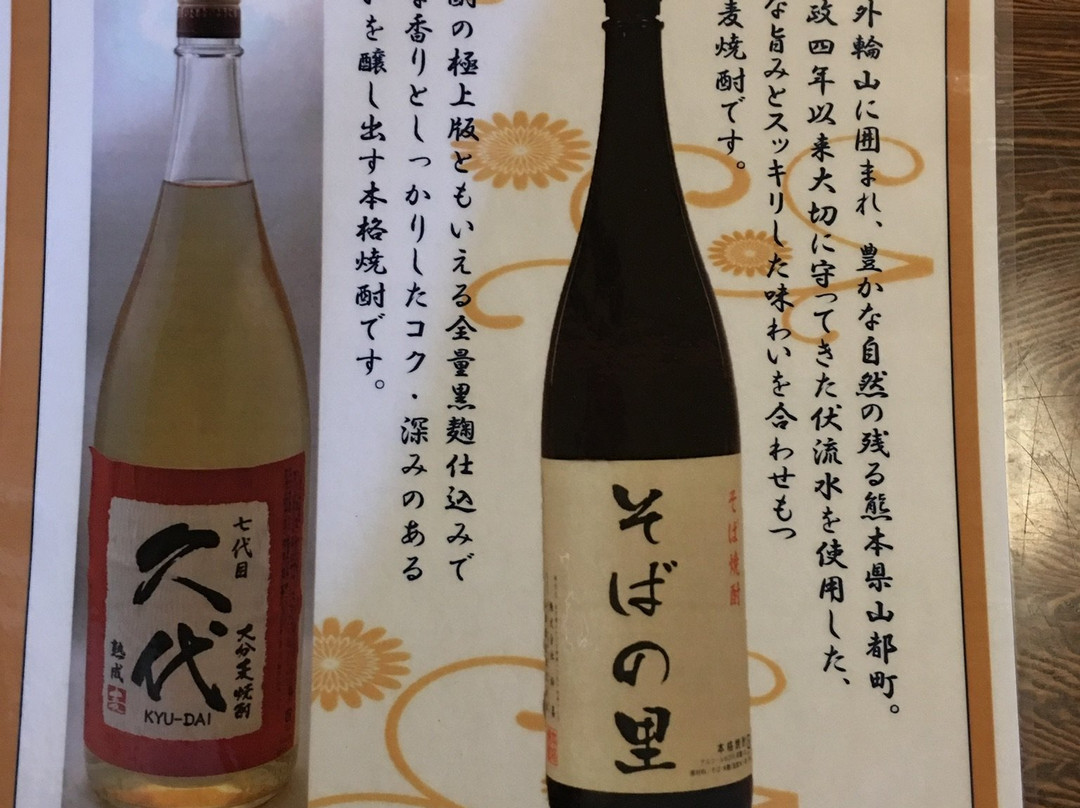 外輪山に囲まれ、豊かな自然の残る熊本県山都町。
政四年以来大切に守ってきた伏流水を使用した、
な旨みとスッキリした味わいを合わせもつ
麦焼酎です。
そば焼酎
そばの里
本格焼酎
酎の極上版ともいえる全量黒麹仕込みで
な香りとしっかりしたコク・深みのある
を醸し出す本格焼酎です。
七代目
久代
KYU-DAI
大分麦焼酎
熟成